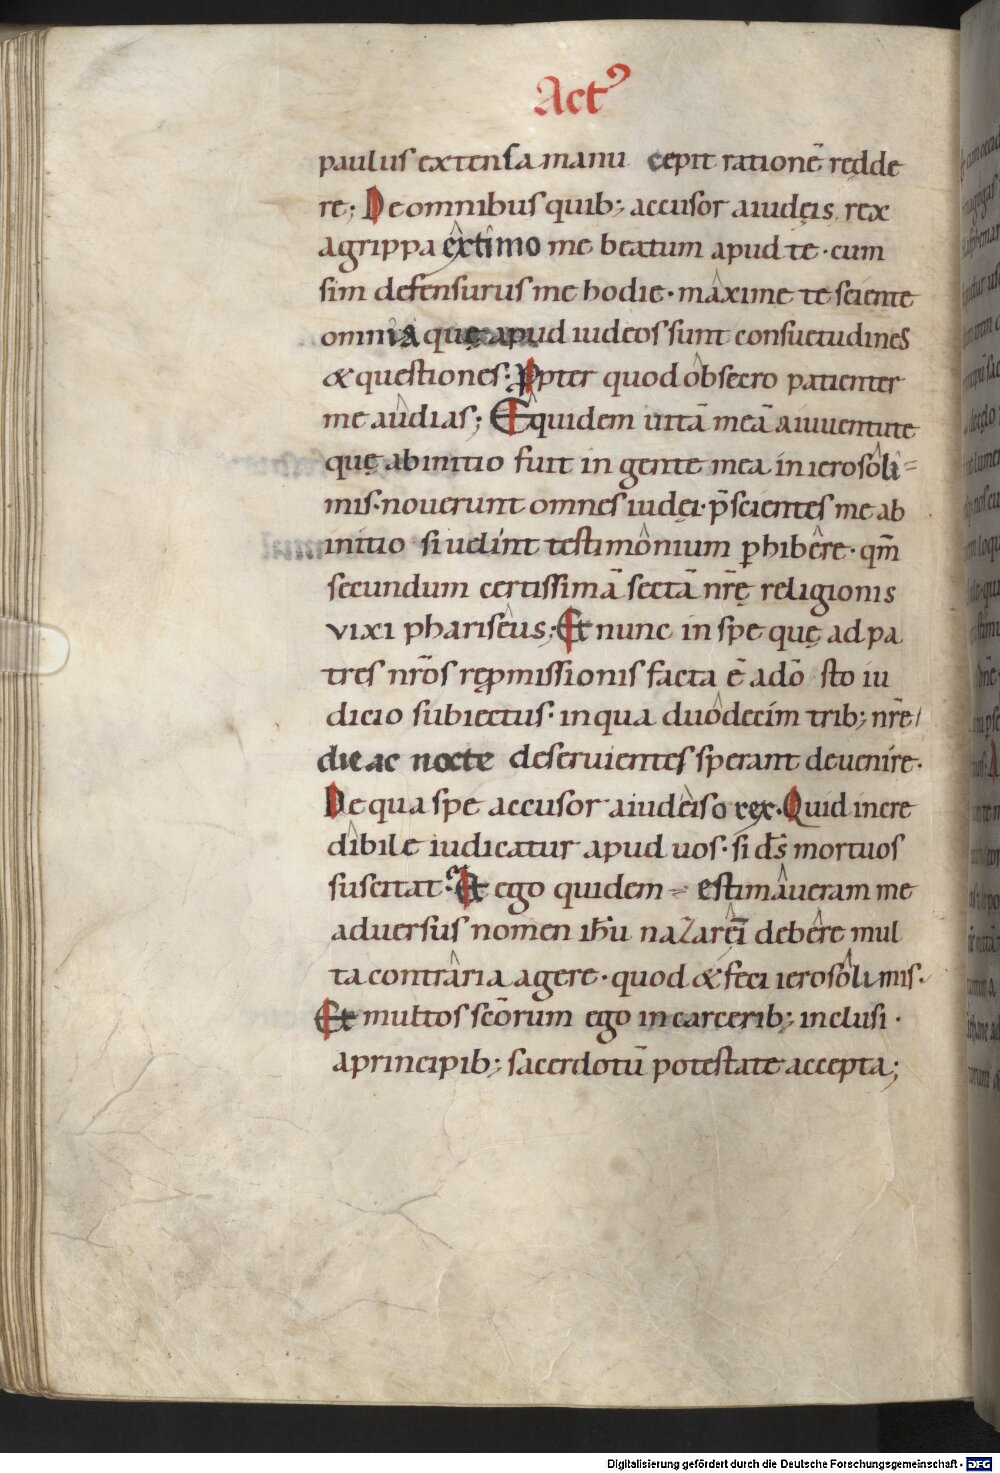 Actꝰ
paulus extensa manu cepit rationē redde
re; De omnibus quib; accusor a iudęis rex
agrippa extimo me beatum apud te · cum
sim defensurus me hodie · maxime te sciente
omnia quę apud iudeos sunt consuetudines
& questiones · Ꝓpter quod obsecro patienter
me audias; Et quidem uitā meā a iuuentute
quę ab initio fuit in gente mea in ierosoli-
mis · nouerunt omnes iudęi · p̄scientes me ab
initio si uelint testimonium ꝑhibere · qm̄
secundum certissimā sectā nr̄ę religionis
vixi phariseus; Et nunc in spe quę ad pa
tres nr̄os rępmissionis facta ē a dō sto iu
dicio subiectus · in qua duodecim trib; nr̄e
die ac nocte deseruientes sperant deuenire ·
De qua spe accusor a iudeis o rex · Quid incre
dibile iudicatur apud uos · si ds̄ mortuos
suscitat? Et ego quidem estimaueram me
aduersus nomen ihu̅ nazareī debere mul
ta contraria agere · quod & feci ierosolimis ·
Et multos scōrum ego in carcerib; inclusi ·
a principib; sacerdotū potestate accepta;
Digitalisierung gefördert durch die Deutsche Forschungsgemeinschaft - DFG